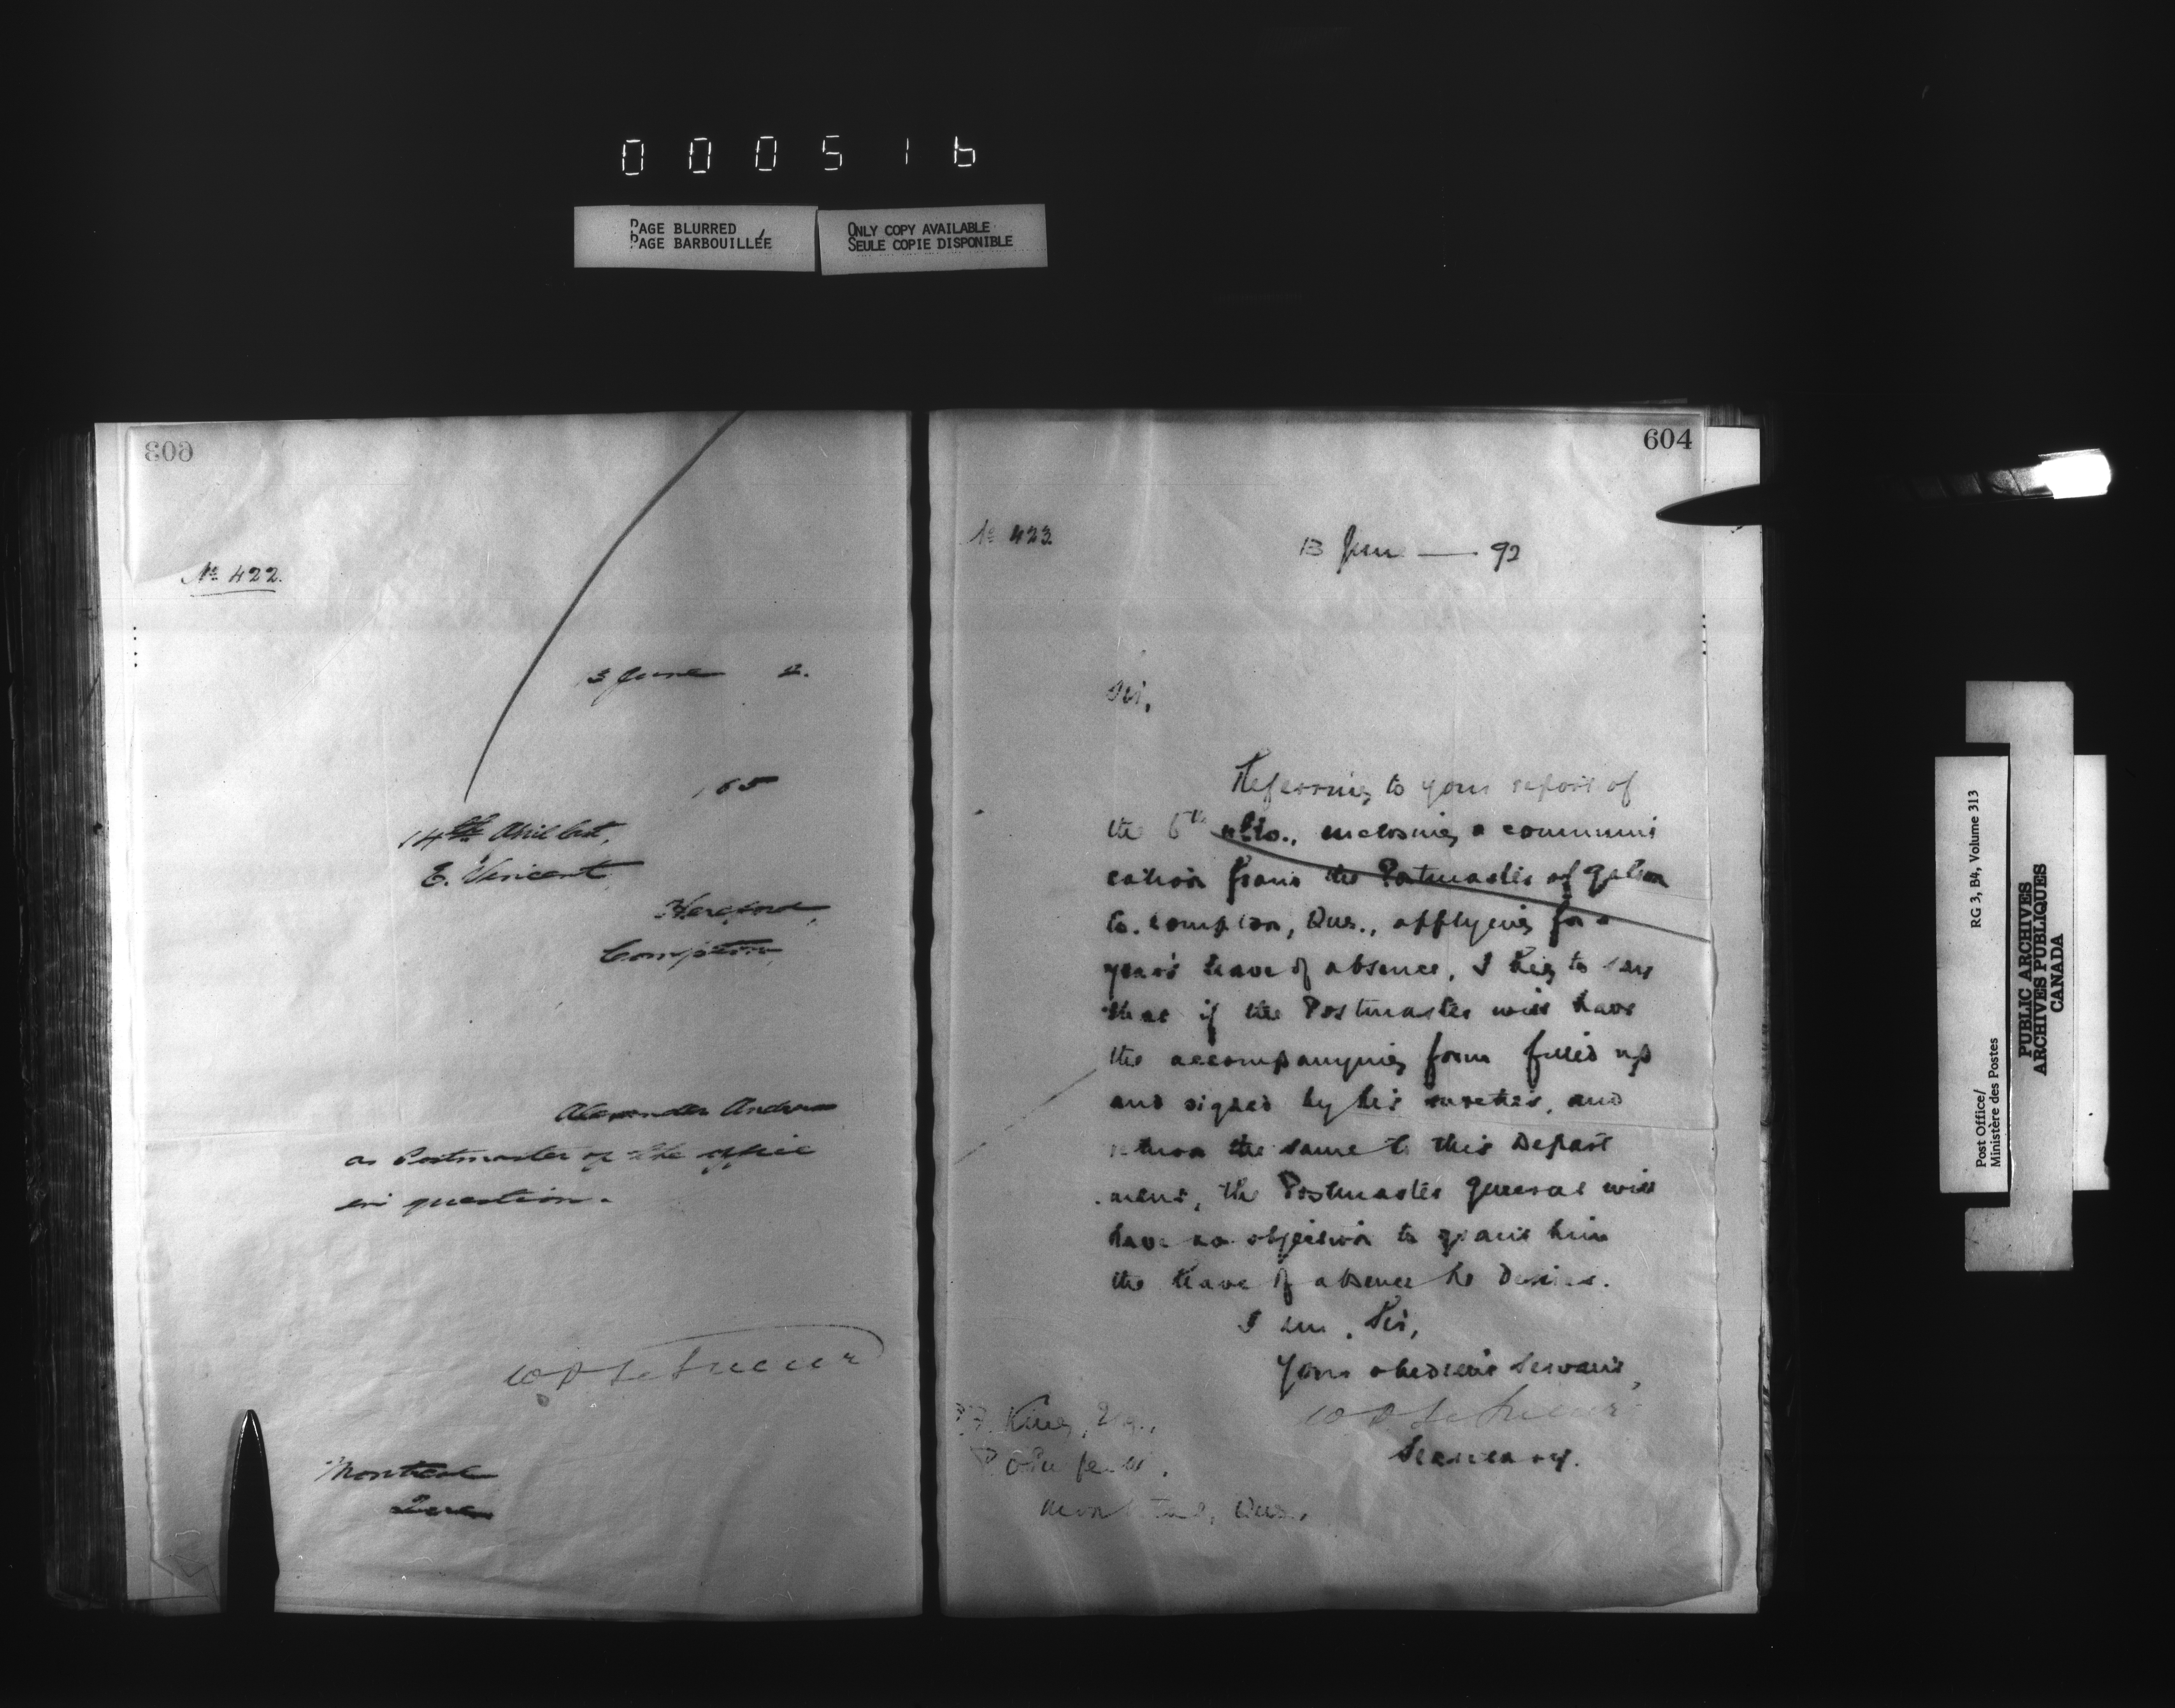 000516
PAGE BLURRED
PAGE BARBOUILLÉE
ONLY COPY AVAILABLE
SEULE COPIE DISPONIBLE
603
No 422.
3 June 2.
165
14th April last,
E. Vincent
Hereford,
Compton
Alexander Andrews
as Postmaster of the office
in question.
W D LeSueur
Montreal
Que
604
No 423
13 June — 92
Sir,
Referring to your report of
the 6th ulto., inclosing a communi
cation from the Postmaster of
Co. Compton, Que., applying for a
year's leave of absence, I beg to say
that if the Postmaster will have
the accompanying form filled up
and signed by his sureties, and
return the same to this Depart
ment, the Postmaster General will
have no objection to grant him
the leave of absence he desires.
I am, Sir,
Your obedient Servant,
W D LeSueur
Secretary.
King, Esq.,
P. O. Inspector.
Montreal, Que.
Post Office/
Ministère des Postes
RG 3, B4, Volume 313
PUBLIC ARCHIVES
ARCHIVES PUBLIQUES
CANADA